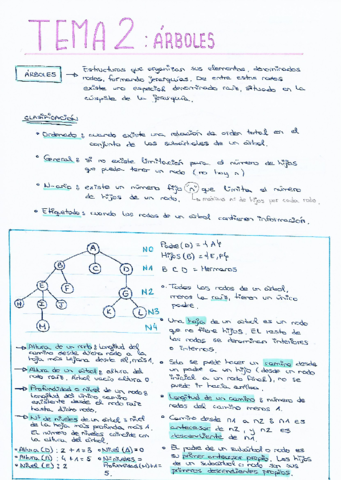 TEMA 2: ÁRBOLES
ÁRBOLES → Estructuras que organizan sus elementos, denominados
nodos, formando jerarquías. De entre estos nodos
existe uno especial denominado raíz, situado en la
cúspide de la jerarquía.
CLASIFICACIÓN
• Ordenado: cuando existe una relación de orden total en el
conjunto de los subárboles de un árbol.
• General: si no existe limitación para el número de hijos
que puede tener un nodo (no hay n)
• N-ario: existe un número fijo "n" que limita el número
de hijos de un nodo.
• Etiquetado: cuando los nodos de un árbol contienen información.
A
B C D
E F G
H I J K L
M
N0
N1
N2
N3
N4
Padre(B) = {A}
B C D = Hermanos
• Todos los nodos de un árbol,
menos la raíz, tienen un único
padre.
• Una hoja de un árbol es un nodo
que no tiene hijos. El resto de
los nodos se denominan interiores
o internos.
• Sólo se puede hacer un camino desde
un padre a un hijo (desde un nodo
inicial a un nodo final), no se
puede ir hacia arriba.
• Longitud de un camino: número de
nodos del camino menos 1.
• Camino desde n1 a n2: n1 es
antecesor de n2, y n2 es
descendiente de n1.
• El padre de un subárbol o nodo es
su primer antecesor propio. Los hijos
de un subárbol o nodo son sus
primeros descendientes propios.
→ Altura de un nodo: longitud del
camino desde dicho nodo a la
hoja más lejana desde él, más 1.
→ Altura de un árbol: altura del
nodo raíz, árbol vacío altura 0
→ Profundidad o nivel de un nodo:
longitud del único camino
existente desde el nodo raíz
hasta dicho nodo.
→ Nº de niveles de un árbol: nivel
de la hoja más profunda más 1.
El número de niveles coincide con
la altura del árbol.
• Altura (D): 2+1=3 • Nivel (A)=0
• Altura (A): 4+1=5 • Niveles=
• Nivel (E): 2